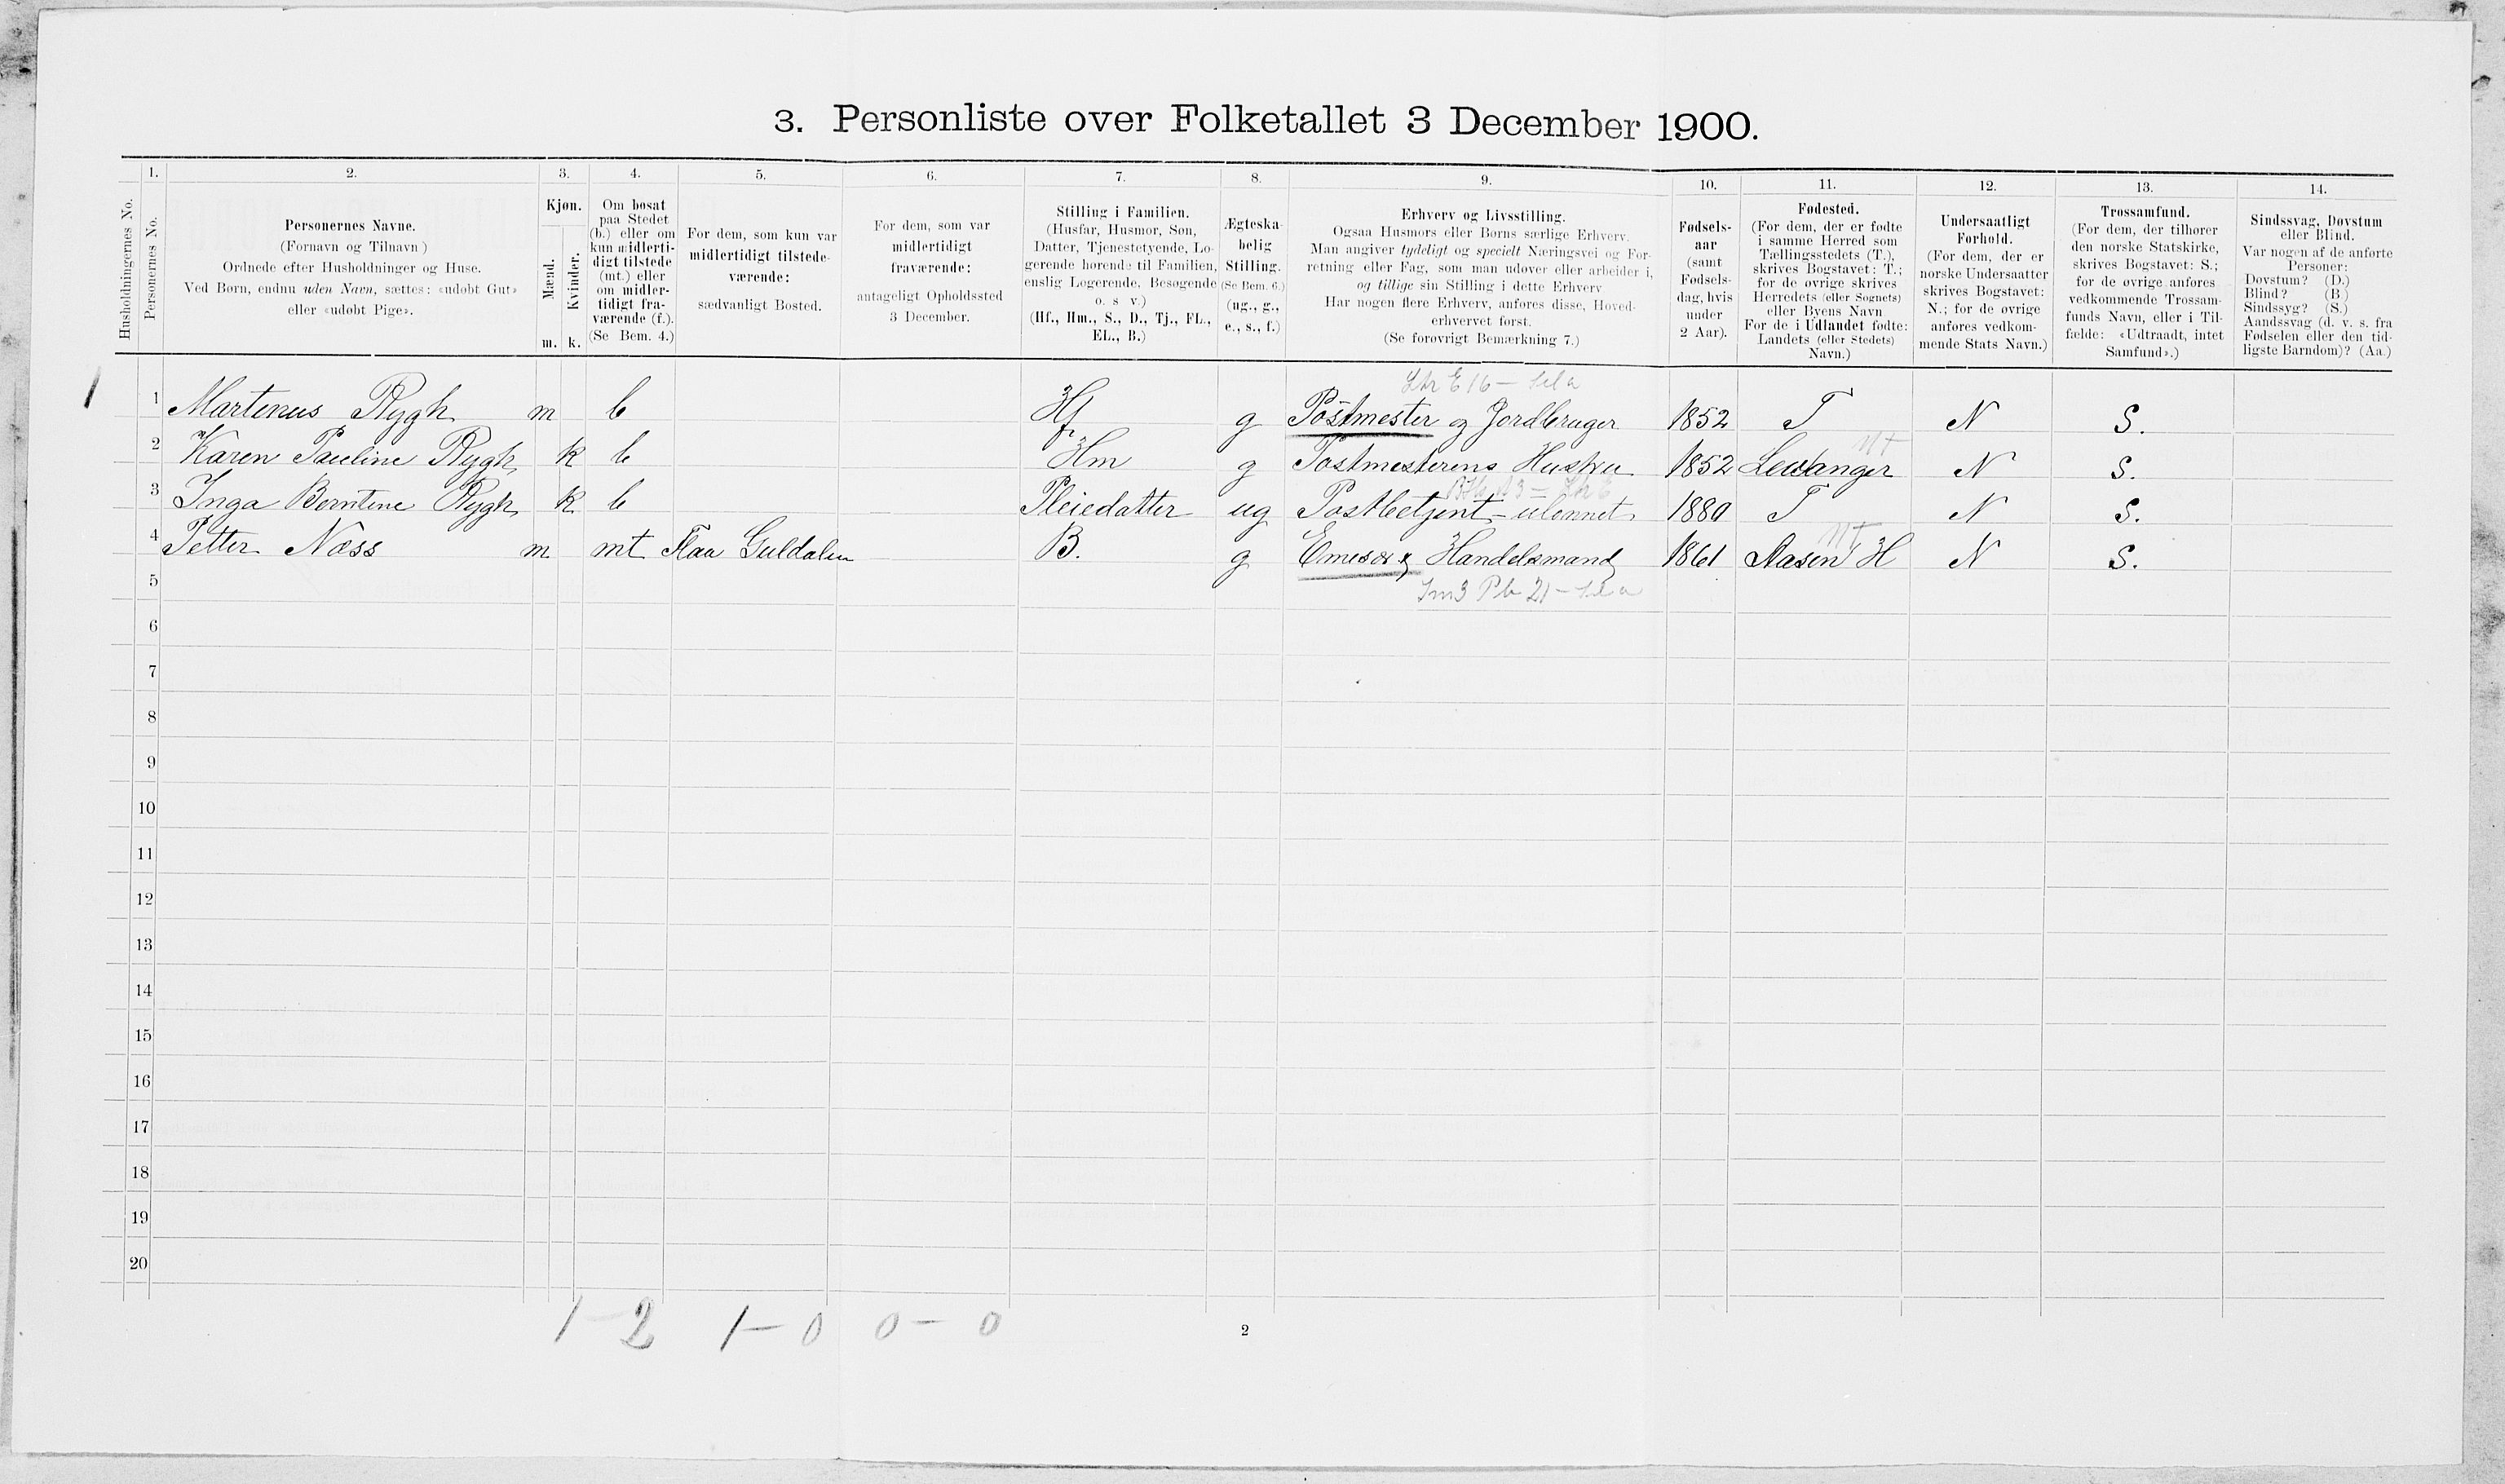 3. Personliste over Folketallet 3 December 1900.
Husholdningernes No.
1.
Personernes No.
2.
Personernes Navne.
(Fornavn og Tilnavn)
Ordnede efter Husholdninger og Huse.
Ved Børn, endnu uden Navn, sættes: «udøbt Gut»
eller «udøbt Pige».
3.
Kjøn.
Mænd.
Kvinder.
m. k.
4.
Om bosat
paa Stedet
(b.) eller om
kun midlerti-
digt tilstede
(mt.) eller
om midler-
tidigt fra-
værende (f.).
(Se Bem. 4.)
5.
For dem, som kun var
midlertidigt tilstede-
værende:
sædvanligt Bosted.
6.
For dem, som var
midlertidigt
fraværende:
antageligt Opholdssted
3 December.
7.
Stilling i Familien.
(Husfar, Husmor, Søn,
Datter, Tjenestetyende, Lo-
gerende hørende til Familien,
enslig Logerende, Besøgende
o. s v.)
(Hf., Hm., S., D., Tj., FL.,
EL., B.)
8.
Ægteska-
belig
Stilling.
(Se Bem. 6.)
(ug., g.,
e., s., f.)
9.
Erhverv og Livsstilling.
Ogsaa Husmors eller Børns særlige Erhverv.
Man angiver tydeligt og specielt Næringsvei og For-
retning eller Fag, som man udøver eller arbeider i,
og tillige sin Stilling i dette Erhverv
Har nogen flere Erhverv, anføres disse, Hoved-
erhvervet først.
(Se forøvrigt Bemærkning 7.)
10.
Fødsels-
aar
(samt
Fødsels-
dag, hvis
under
2 Aar).
11.
Fødested.
(For dem, der er fødte
i samme Herred som
Tællingsstedets (T.),
skrives Bogstavet: T.;
for de øvrige skrives
Herredets (eller Sognets)
eller Byens Navn
For de i Udlandet fødte:
Landets (eller Stedets)
Navn.)
12.
Undersaatligt
Forhold.
(For dem, der er
norske Undersaatter
skrives Bogstavet:
N.; for de øvrige
anføres vedkom-
mende Stats Navn.)
13.
Trossamfund.
(For dem, der tilhører
den norske Statskirke,
skrives Bogstavet: S.;
for de øvrige anføres
vedkommende Trossam-
funds Navn, eller i Til-
fælde: «Udtraadt, intet
Samfund».)
14.
Sindssvag, Døvstum
eller Blind.
Var nogen af de anførte
Personer:
Døvstum? (D.)
Blind? (B)
Sindssyg? (S.)
Aandssvag (d. v. s. fra
Fødselen eller den tid-
ligste Barndom)? (Aa.)
1 1 Martinus Rygh m b Hf g Postmester og Jordbruger 1852 T N S.
2 Karen Pauline Rygh k b Hm g Postmesterens Hustru 1852 Levanger N S.
3 Inga Berntine Rygh k b Pleiedatter ug Postbetjent - ulønnet 1880 T N S.
4 Petter Næss m mt Flaa Guldalen B. g Handelsmand 1861 Aasen H N S.
5
6
7
8
9
10
11
12
13
14
15
16
17
18
19
20
1 - 2 1 - 0 0 - 0
2